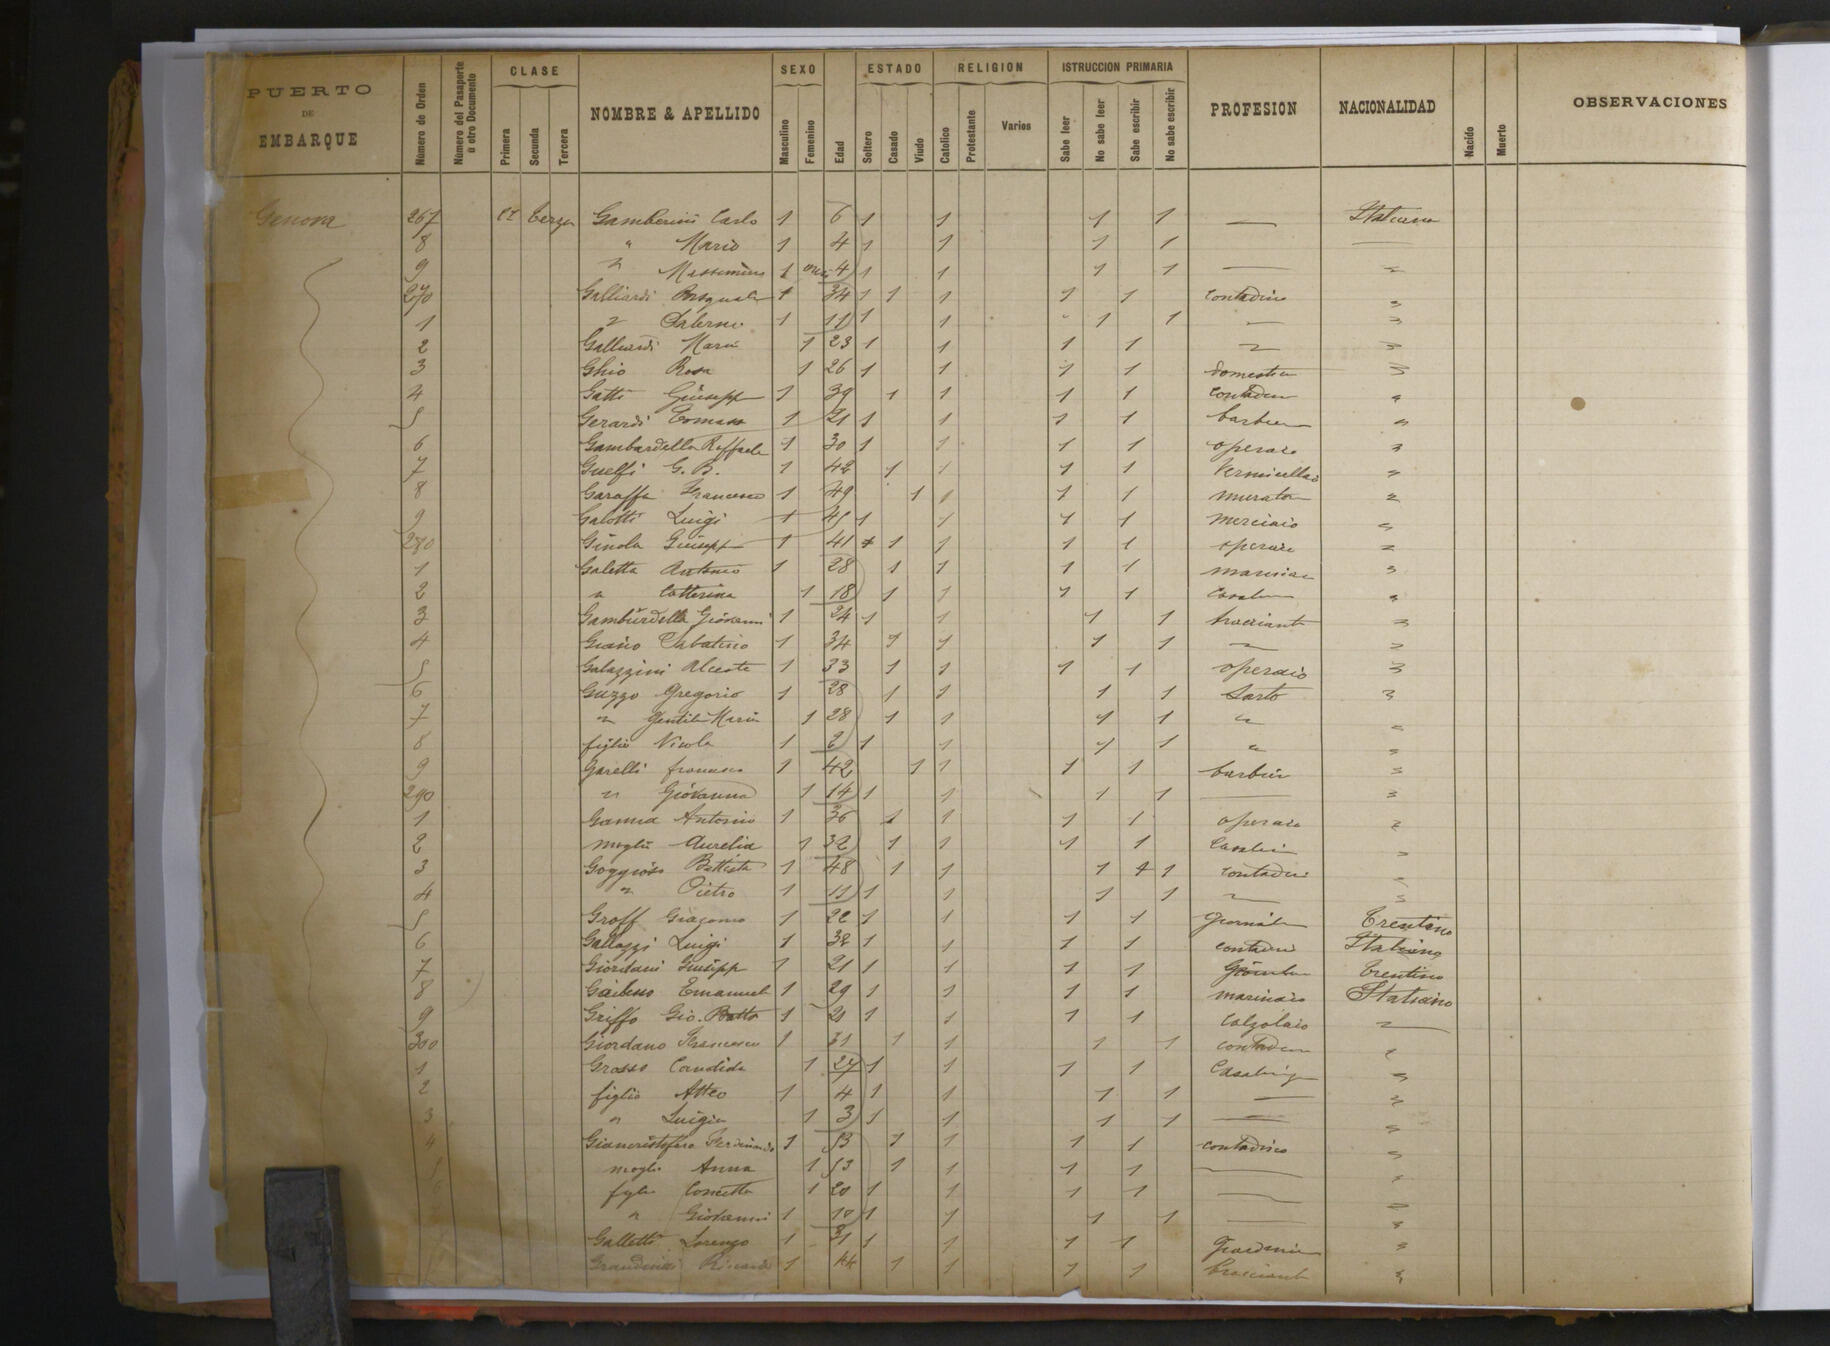 PUERTO DE EMBARQUE
Número de Orden
Número del Pasaporte u otro Documento
CLASE
Primera Secunda Tercera
NOMBRE & APELLIDO
SEXO
Masculino Femenino
Edad
ESTADO
Soltero Casado Viudo
RELIGION
Catolico Protestante Varios
ISTRUCCION PRIMARIA
Sabe leer No sabe leer Sabe escribir No sabe escribir
PROFESION
NACIONALIDAD
Nacido
Muerto
OBSERVACIONES
Genova 267 Cl terza Gamberini Carlo 1 6 1 1 1 1 — Italiana
8 " Mario 1 4 1 1 1 1 —
9 " Massimino 1 4 1 1 1 1 — "
270 Galliardi Pasquale 1 34 1 1 1 1 1 contadino "
1 " Salerno 1 11 1 1 1 1 " "
2 Galliardi Maria 1 23 1 1 1 1 " "
3 Ghio Rosa 1 26 1 1 1 1 domestica "
4 Gatti Giuseppe 1 39 1 1 1 1 contadin "
5 Gerardi Tomaso 1 21 1 1 1 1 barbiere "
6 Gambardella Raffaele 1 30 1 1 1 1 operaio "
7 Guelfi G. B. 1 42 1 1 1 1 Vermicellaio "
8 Garaffa Francesco 1 49 1 1 1 1 murator "
9 Galotti Luigi 1 45 1 1 1 1 merciaio "
280 Ginola Giuseppe 1 41 1 1 1 1 operaio "
1 Galetta Antonio 1 28 1 1 1 1 "
2 " Catterina 1 18 1 1 1 1 "
3 Gambardella Giovanni 1 24 1 1 1 1 bracciante "
4 Sabatino 1 34 1 1 1 1 " "
5 Galazzini Alceste 1 33 1 1 1 1 operaio "
6 Guzzo Gregorio 1 28 1 1 1 1 Sarto "
7 " Gentile Maria 1 28 1 1 1 1 " "
8 figlio Nicola 1 2 1 1 1 1 " "
9 Garelli francesco 1 42 1 1 1 1 barbier "
290 " Giovanna 1 14 1 1 1 1 — "
1 Antonio 1 36 1 1 1 1 operaio "
2 moglie Aurelia 1 32 1 1 1 1 "
3 Battista 1 48 1 1 1 1 contadin "
4 " Pietro 1 11 1 1 1 1 " "
5 Groff Giacomo 1 22 1 1 1 1 giornal Trentino
6 Gallazzi Luigi 1 32 1 1 1 1 contadin Italiano
7 Giordani Giuseppe 1 21 1 1 1 1 Trentino
8 Emanuel 1 29 1 1 1 1 marinaio Italiano
9 Griffo Gio. Batta 1 20 1 1 1 1 Calzolaio "
300 Giordano Francesco 1 31 1 1 1 1 contadin "
1 Grosso Candida 1 27 1 1 1 1 Casaling "
2 figlio Atteo 1 4 1 1 1 1 — "
3 " Luigia 1 3 1 1 1 1 — "
4 Giancristofaro Ferdinando 1 53 1 1 1 1 contadino "
5 moglie Anna 1 53 1 1 1 1 — "
figlia Concetta 1 20 1 1 1 1 — "
" Giovanni 1 10 1 1 1 1 — "
Galletti Lorenzo 1 31 1 1 1 1 "
Riccardo 1 44 1 1 1 1 bracciante "